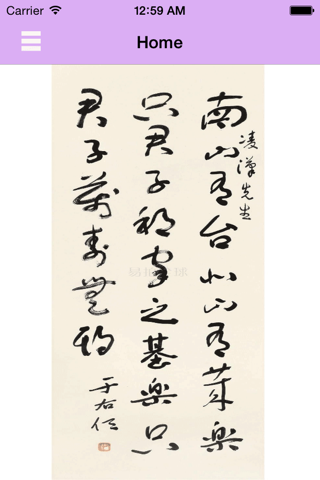 Carrier 12:59 AM
Home
凌漢先生
南山有台北山有萊樂
只君子邦家之基樂只
君子萬壽無期
于右任